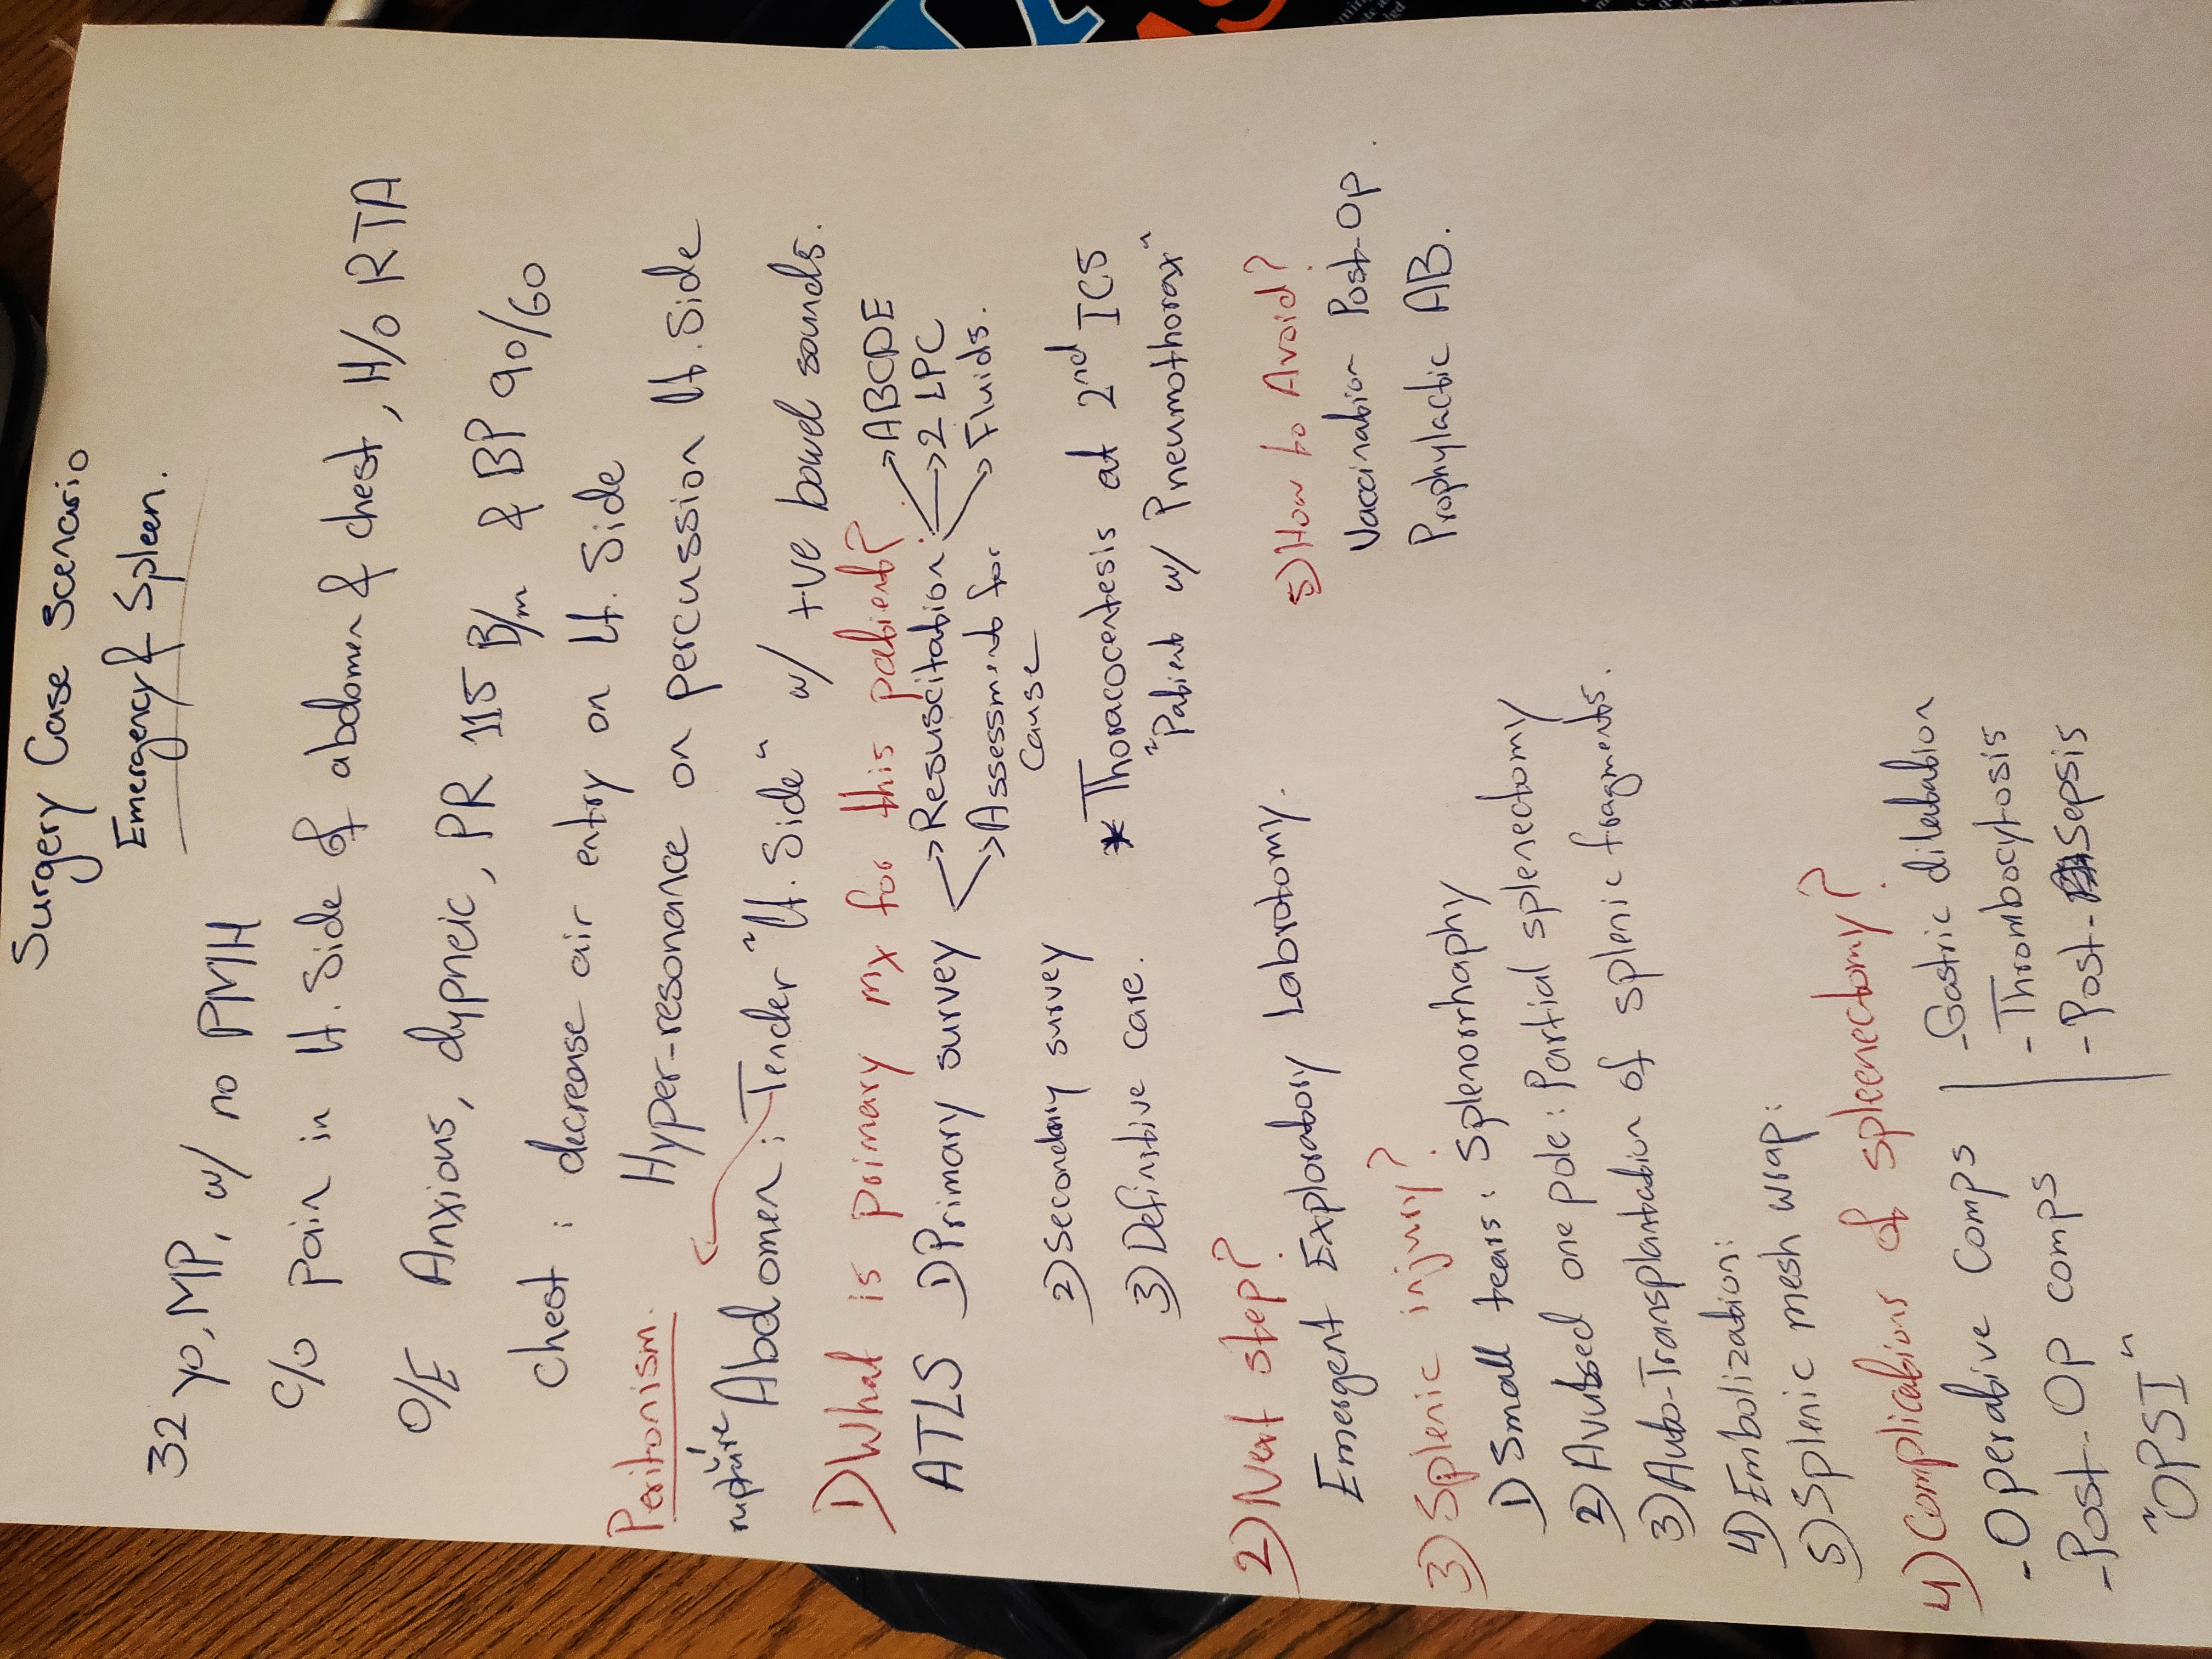 Surgery Case Scenario
Emergency & Spleen.
32 yo, MP, w/ no PMH
c/o Pain in Lt. Side of abdomen & chest, H/o RTA
O/E Anxious, dypneic, PR 115 B/m & BP 90/60
chest : decrease air entry on Lt. Side
Hyper-resonance on percussion Lt. Side
Peritonism.
rupture
Abdomen : Tender "Lt. Side" w/ +ve bowel sounds.
1) What is primary mx for this patient?
ATLS 1) Primary survey → Resuscitation: → ABCDE
→ 2 LPC
→ Fluids.
→ Assessment for cause
2) Secondary survey
3) Definitive care.
* Thoracocentesis at 2nd ICS
"Patient w/ Pneumothorax"
2) Next step?
Emergent Exploratory Labrotomy.
3) Splenic injury?
1) Small tears : Splenorrhaphy
2) Avulsed one pole : Partial splenectomy
3) Auto-Transplantation of splenic fragments.
4) Embolization:
5) Splenic mesh wrap:
4) Complications of spleenectomy?
- Operative Comps
- Post-Op comps
"OPSI"
- Gastric dilatation
- Thrombocytosis
- Post- Sepsis
5) How to Avoid?
Vaccination Post-Op.
Prophylactic AB.